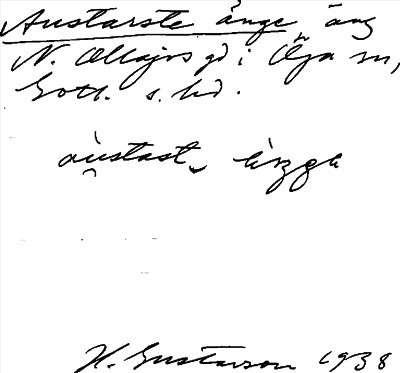 Austarste änge äng
N. Ollajvs gd i Öja sn,
Gotl. s. hd.
au̯stast‿ äŋgə
H. Gustavson 1938